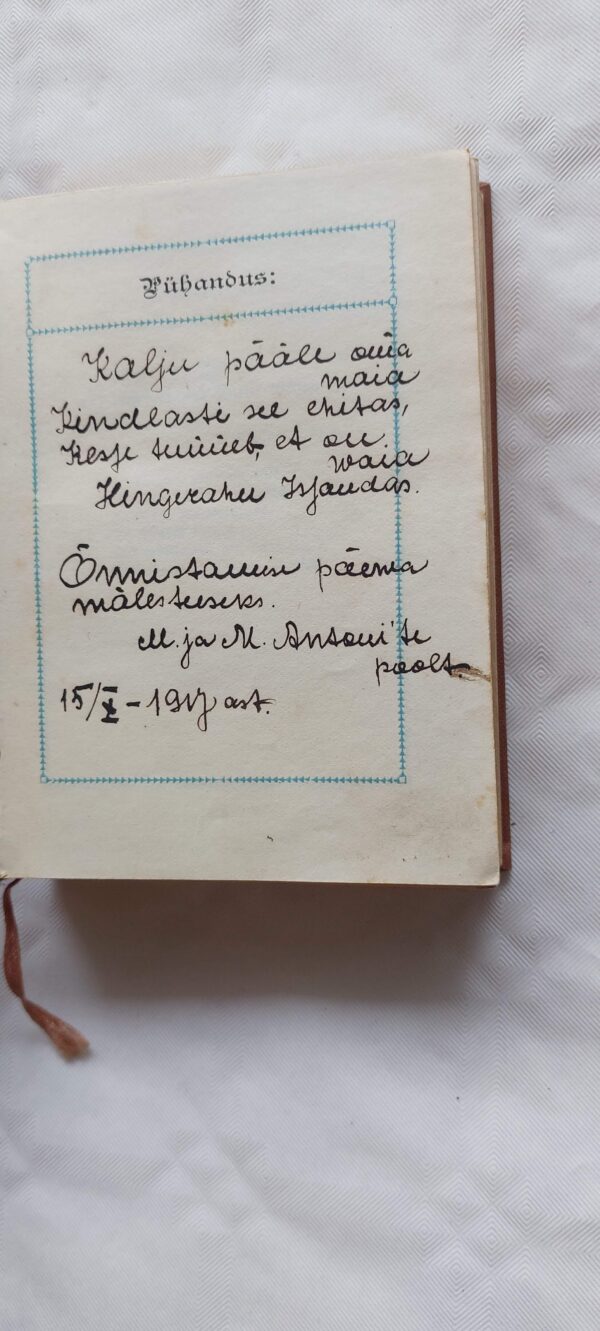 Pühandus:
Kalju pääle oma
maia
Kindlasti see ehitas,
Kes tunneb, et on
waia
Hingerahu Issandas.
Õnnistamise päewa
mälestuseks.
M. ja M. Antoni'te
poolt.
15/X – 1917 ast.